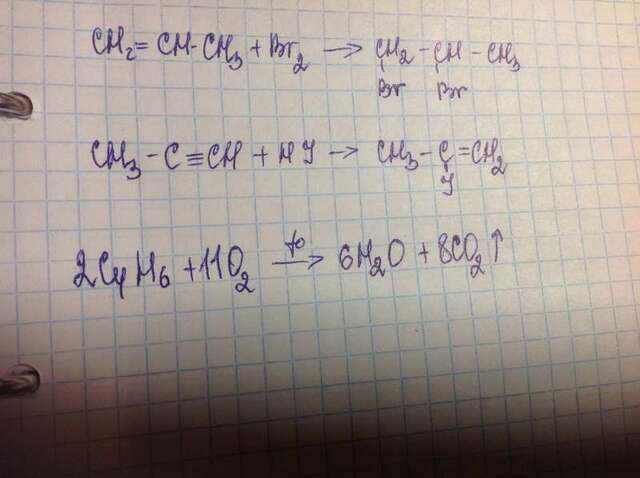 CH₂ = CH - CH₃ + Br₂ → CH₂ - CH - CH₃
Br Br
CH₃ - C ≡ CH + HJ → CH₃ - C = CH₂
J
2C₄H₆ + 11O₂ →(t°) 6H₂O + 8CO₂↑